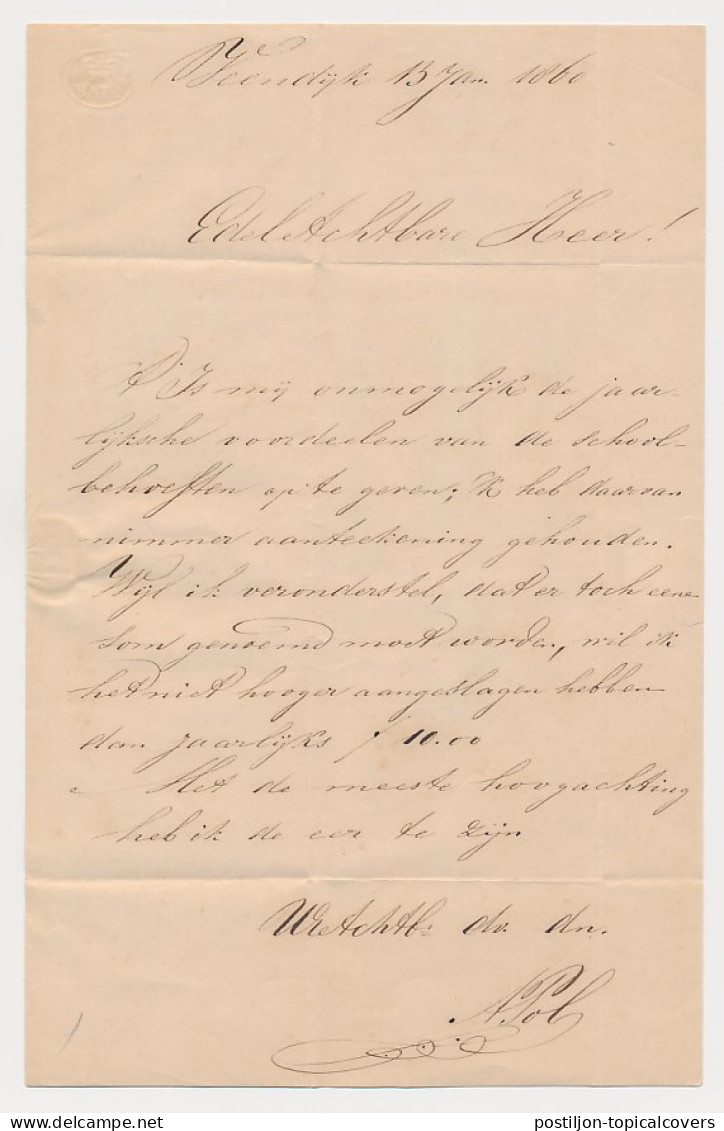 Veendijk 13 Jan. 1860
Edel Achtbare Heer!
't Is mij onmogelijk de jaar-
lijksche voordeelen van de school-
behoeften op te geven; ik heb daarvan
nimmer aanteekening gehouden.
Wijl ik veronderstel, dat er toch eene
som genoemd moet worden, wil ik
het niet hooger aangeslagen hebben
dan jaarlijks f 10.00
Met de meeste hoogachting
heb ik de eer te zijn
UEdAchtb: dv. dn.
A. Pol
postiljon-topicalcovers